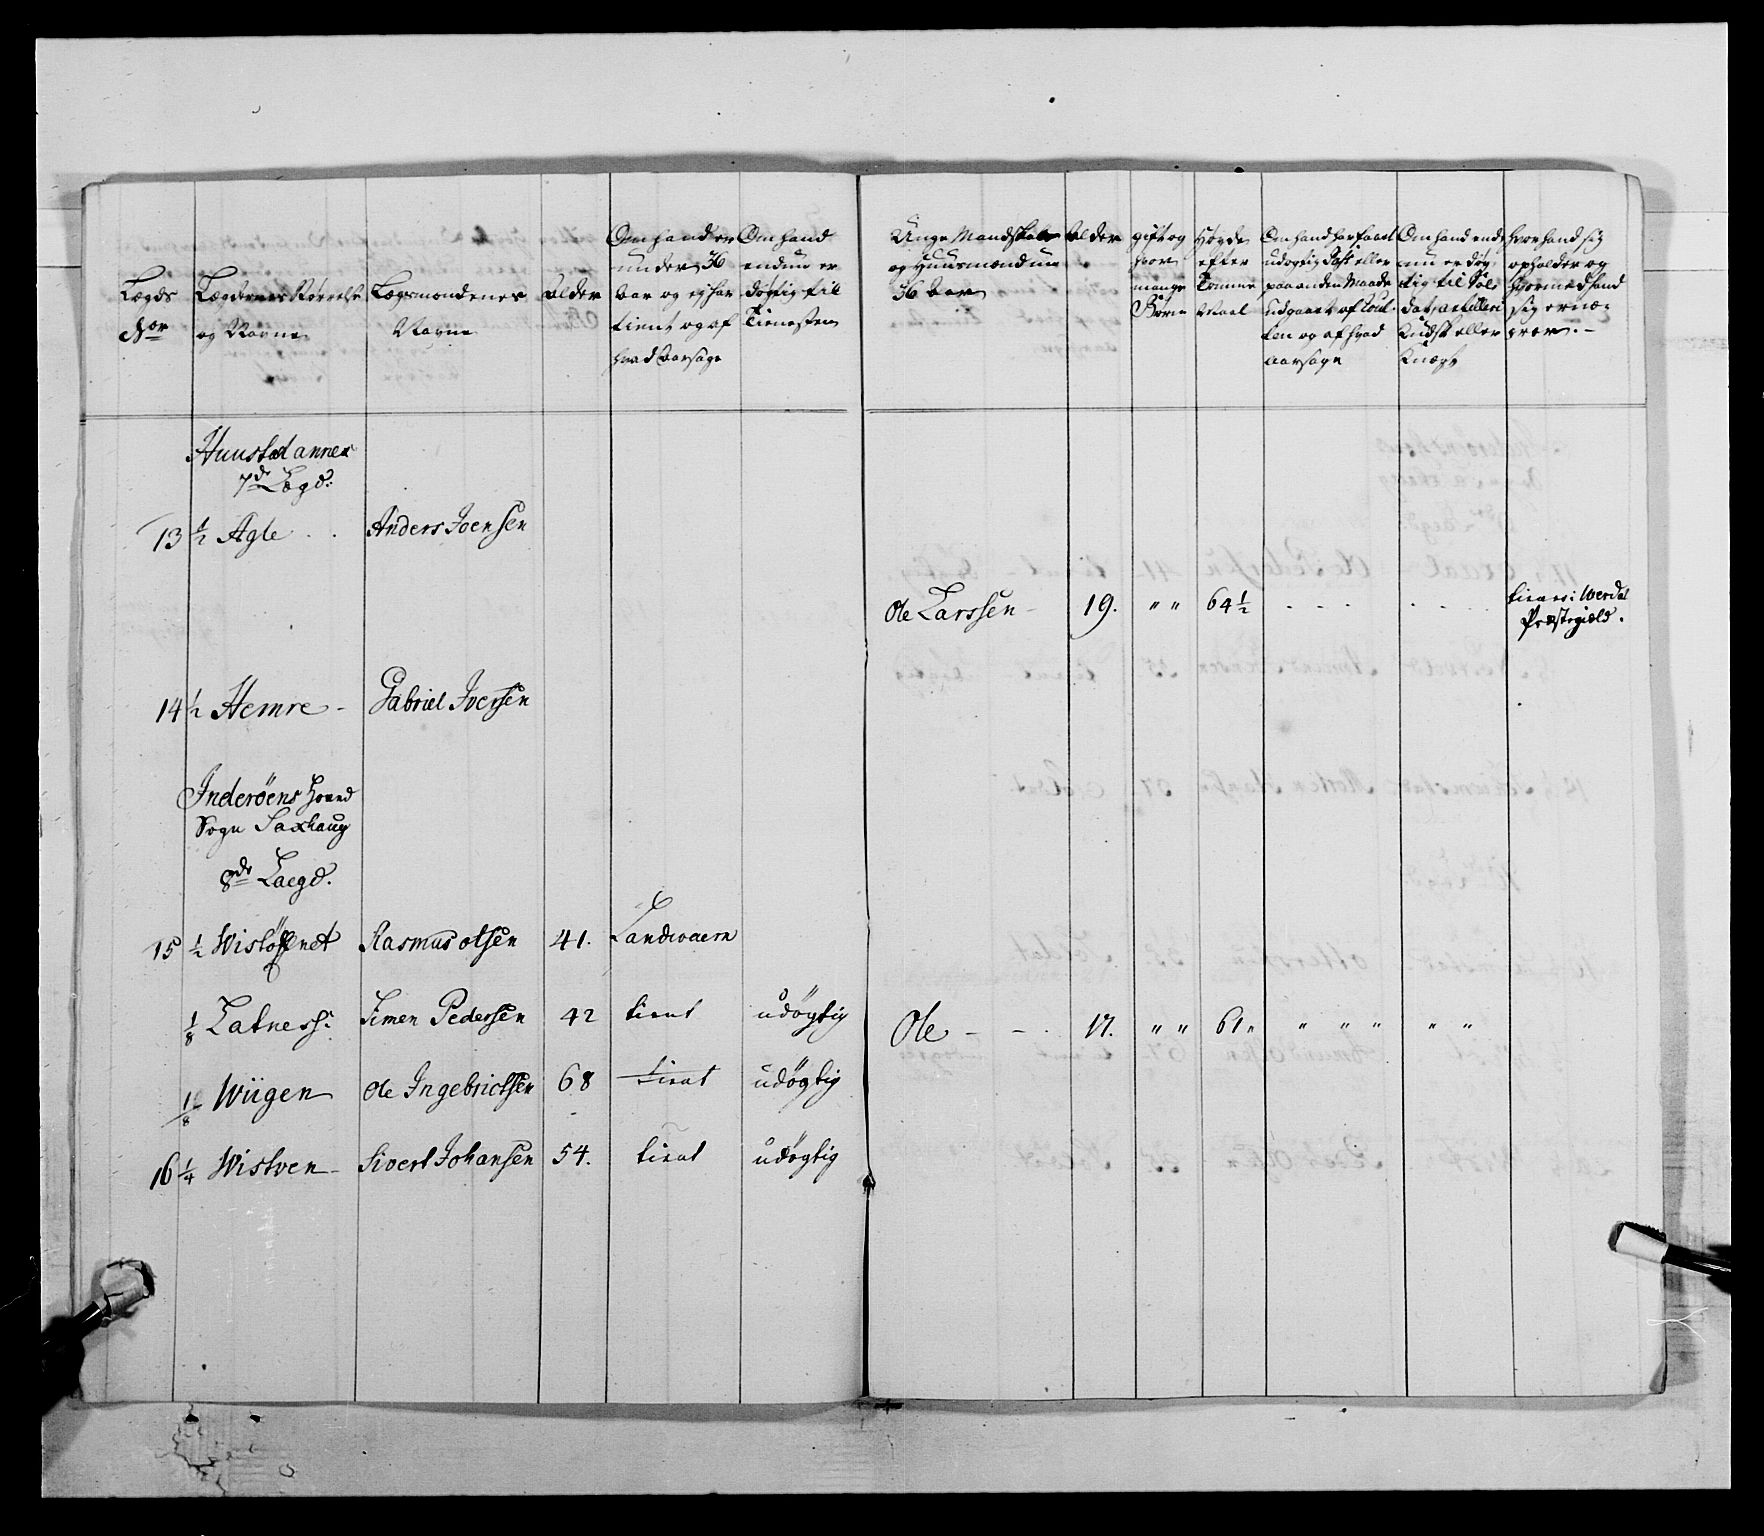 Lægds
Nor
Lægdernes Størrelse
og Navne
Lægsmændenes
Navne
Alder
Om hand er
under 36
Aar og ej har
tient og af
hvad Aarsage
Om hand
endnu er
døgtig til
Tienesten
Unge Mandskab
og Huusmænd un
36 Aar
Alder
gift og
hvor
mange
Børn
Høyde
efter
Tomme
Maal
Om hand har faaet
udøgtig Pass eller
paa anden Maade
udgaaet af Roul
len og af hvad
aarsage
Om hand end
nu er døg
tig til Sol
dat, artilleri
Kudsk eller
Knægt
Hvor hand sig
opholder og
hvormed hand
sig ernæ-
rer.-
Huustad annex
7de Lægd:
13 1/2 Agle . . Anders Joensen
Ole Larssen - 19. " " 64 1/2 - - - - - - tiener i Werdal
Præstegield.
14 1/2 Hemre - Gabriel Iversen
Inderöens Hoved
Sogn Saxhaug
8de Laegd.
15 1/2 Rasmus olsen 41. Landwaern
1/8 Simen Pedersen 42 tient udögtig Ole - - . 17. " " 61 " " " " " "
1/8 Wiigen Ole Ingebrictsen 68 tient udögtig
16 1/4 Wistven - Sivert Johansen 54. tient udögtig